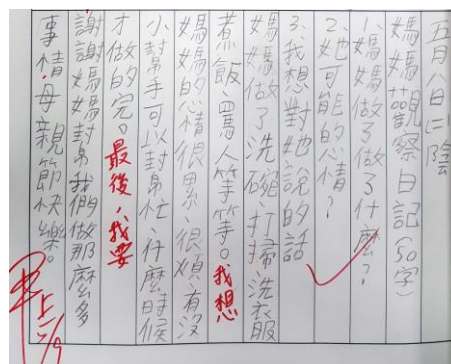 五月八日(二)陰
媽媽觀察日記(50字)
1、媽媽做了做了什麼?
2、她可能的心情?
3、我想對她說的話
媽媽做了洗碗、打掃、洗衣服
煮飯、罵人等等。我想
媽媽的心情很累、很煩,有沒
小幫手可以幫忙,什麼時候
才做的完。最後,我要
謝謝媽媽幫我們做那麼多
事情,母親節快樂。
上5/9